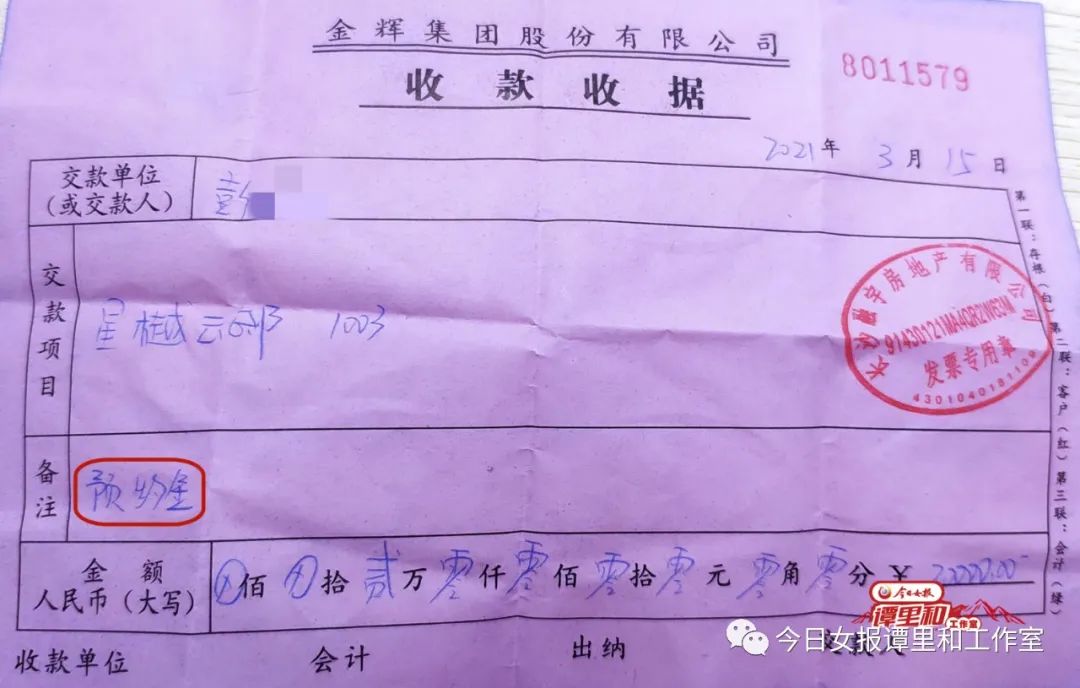 金辉集团股份有限公司
收款收据
8011579
2021年3月15日
交款单位
(或交款人)
彭
交款项目
星樾云邸 1003
长沙融宇房地产有限公司
91430121MA4QR2W63M
发票专用章
4301040181109
备注
预约金
金额
人民币(大写)
佰 拾贰万零仟零佰零拾零元零角零分¥20000.00
第一联:存根(白)第二联:客户(红)第三联:会计(绿)
收款单位 会计 出纳 交款人
今日女报
谭里和
工作室
今日女报谭里和工作室